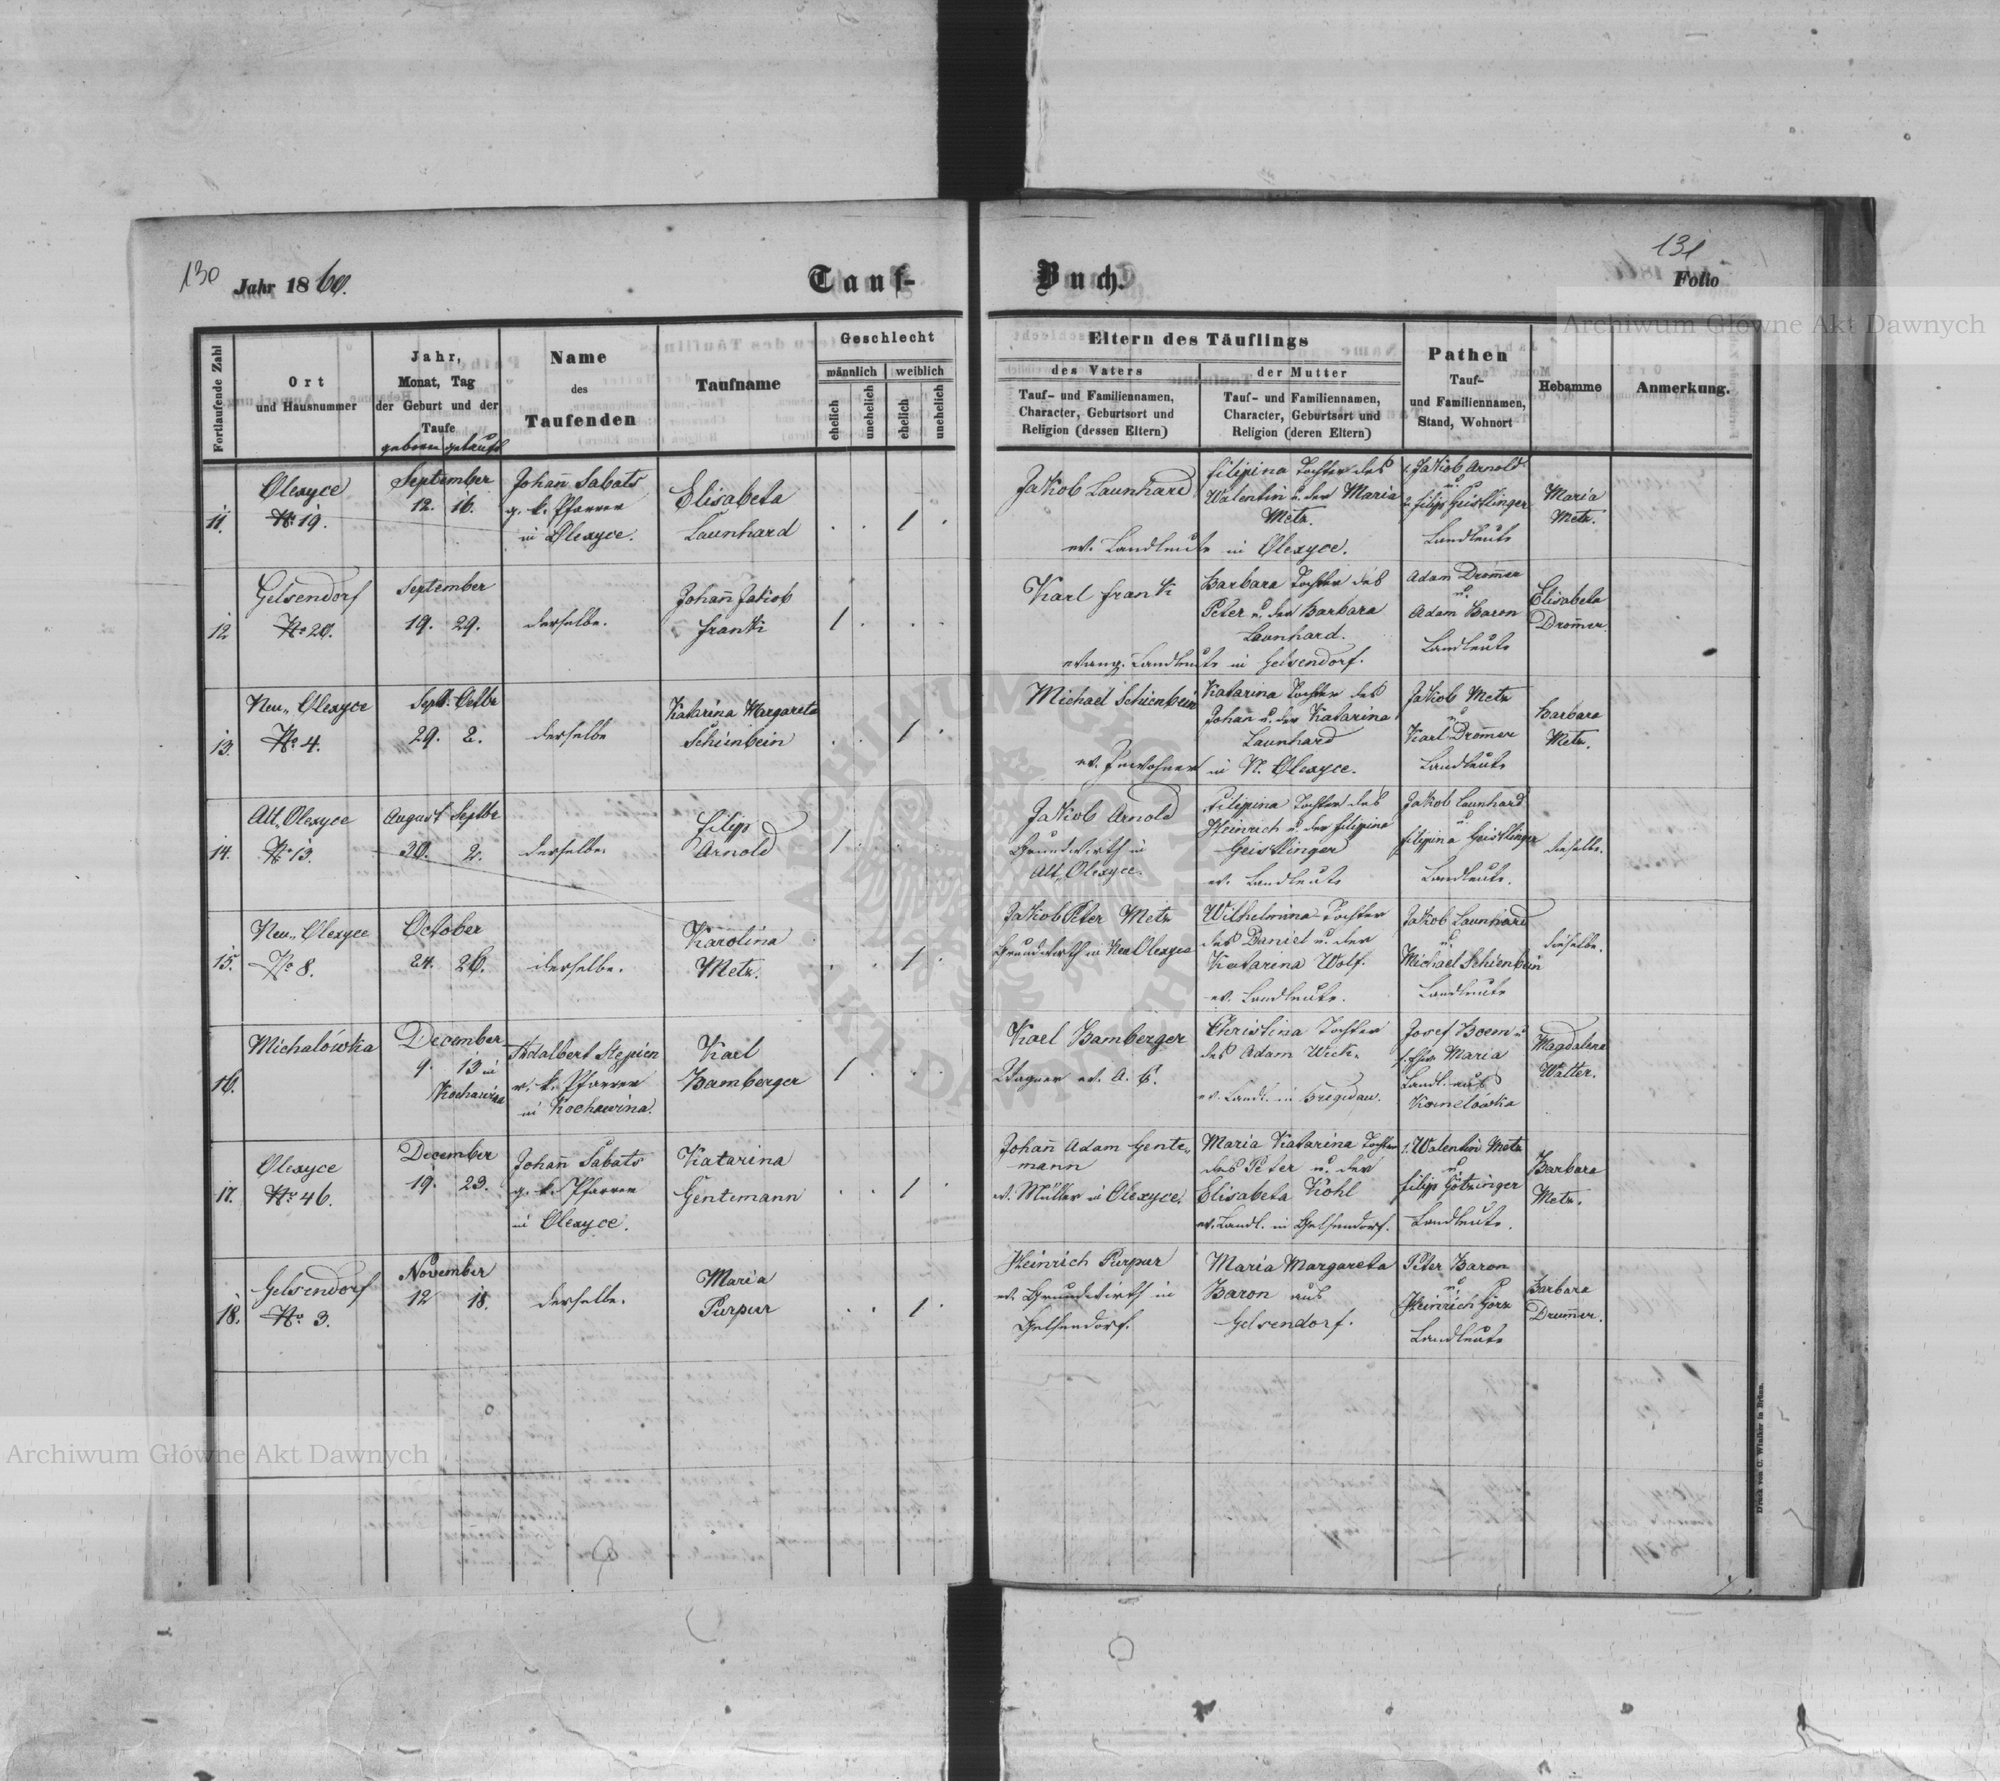 130
Jahr 1860.
Tauf-
Fortlaufende Zahl
Ort
und Hausnummer
Jahr,
Monat, Tag
der Geburt und der
Taufe
geboren getauft
Name
des
Taufenden
Taufname
Geschlecht
männlich
weiblich
ehelich
unehelich
ehelich
unehelich
11.
Olexyce
No 19.
September
12. 16.
Johañ Sabats
g. k. Pfarrer
in Olexyce.
Elisabeta
Launhard
. . 1 .
12
Gelsendorf
No 20.
September
19. 29.
derselbe.
Johañ Jakob
Frank
1 . . .
13.
Neu-Olexyce
No 4.
Sept. Octbr
29. 2.
derselbe
Katarina Margareta
Schienbein
. . 1 .
14.
Alt-Olexyce
No 13.
August Septbr
30. 2.
derselbe.
Filip
Arnold
1 . . .
15.
Neu-Olexyce
No 8.
October
24. 26.
derselbe.
Karolina
Metz.
. . 1 .
16.
Michalówka
December
9. 13 in
Kochawina
Adalbert Stepien
r. k. Pfarrer
in Kochawina.
Karl
Bamberger
1 . . .
17.
Olexyce
No 46.
December
19. 23.
Johañ Sabats
g. k. Pfarrer
in Olexyce.
Katarina
Gentemann
. . 1 .
18.
Gelsendorf
No 3.
November
12 18.
derselbe.
Maria
Purpur
. . 1 .
131
Buch.
Folio
Eltern des Täuflings
des Vaters
Tauf- und Familiennamen,
Character, Geburtsort und
Religion (dessen Eltern)
der Mutter
Tauf- und Familiennamen,
Character, Geburtsort und
Religion (deren Eltern)
Pathen
Tauf-
und Familiennamen,
Stand, Wohnort
Hebamme
Anmerkung.
Jakob Launhard
Filipina Tochter des
Walentin u. der Maria
Metz.
ev. Landleute in Olexyce.
1. Jakob Arnold
u.
2. Filip Geistlinger
Landleute
Maria
Metz.
Karl Frank
Barbara Tochter des
Peter u. der Barbara
Launhard.
evang. Landleute in Gelsendorf.
Adam Drom̃er
u.
Adam Baron
Landleute
Elisabeta
Drom̃er.
Michael Schienbein
Katarina Tochter des
Johañ u. der Katarina
Launhard
ev. Inwohner in N. Olexyce.
Jakob Metz
u
Karl Drom̃er
Landleute
Barbara
Metz.
Jakob Arnold
Grundwirth in
Alt-Olexyce.
Filipina Tochter des
Heinrich u. der Filippina
Geistlinger
ev. Landleute
Jakob Launhard
u.
Filippina Geistlinger
Landleute.
dieselbe.
Jakob Peter Metz
Grundwirth in Neu Olexyce
Wilhelmina Tochter
des Daniel u. der
Katarina Wolf.
ev. Landleute.
Jakob Launhard
u.
Michael Schienbein
Landleute
dieselbe.
Karl Bamberger
Wagner ev. A. C.
Christina Tochter
des Adam Wick.
ev. Landl. in Brigidau.
Josef Boem u
s. Ehw. Maria
Landl. aus
Kornelówka
Magdalena
Walter.
Johañ Adam Gente-
mann
ev. Müller in Olexyce.
Maria Katarina Tochter
des Peter u. der
Elisabeta Köhl
ev. Landl. in Gelsendorf.
1. Walentin Metz
u
Filip Götzinger
Landleute.
Barbara
Metz.
Heinrich Purpur
ev. Grundwirth in
Gelsendorf.
Maria Margareta
Baron aus
Gelsendorf.
Peter Baron
u.
Heinrich Görz
Landleute
Barbara
Drum̃er.
Druck von C. Winiker in Brünn.
Archiwum Główne Akt Dawnych
Archiwum Główne Akt Dawnych
ARCHIWUM GŁÓWNE AKT DAWNYCH